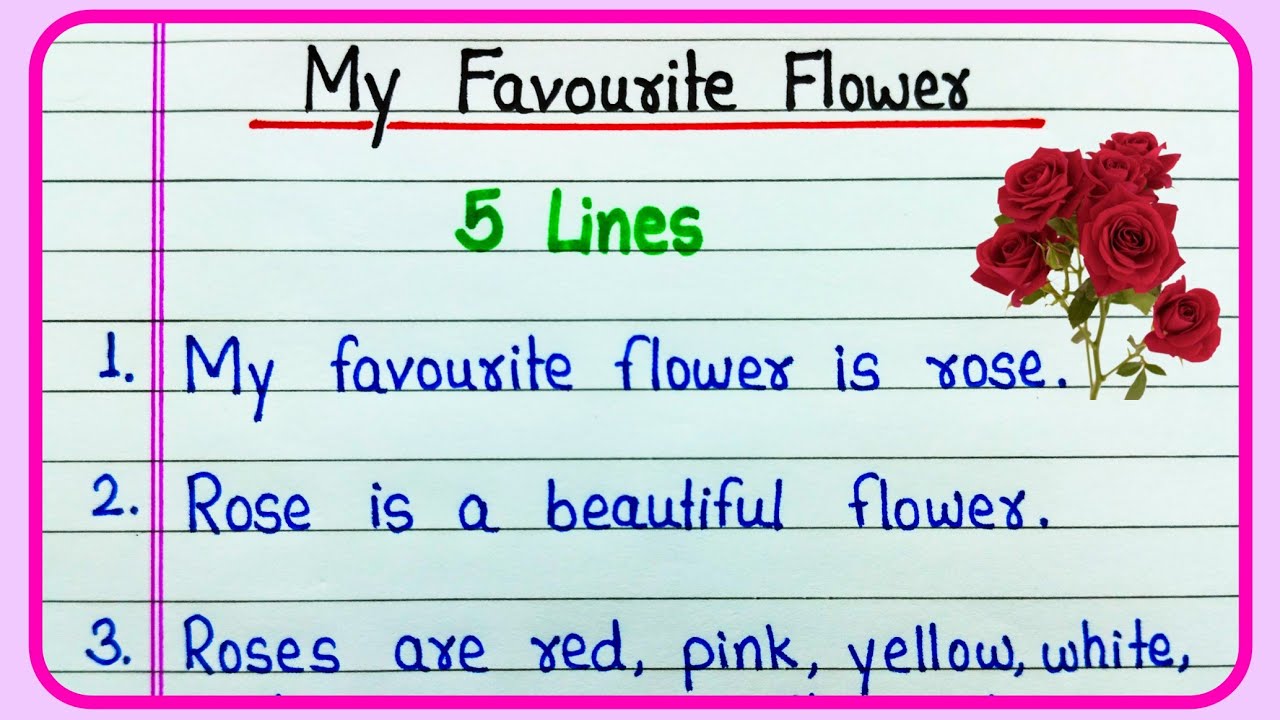 My Favourite Flower
5 Lines
1. My favourite flower is rose.
2. Rose is a beautiful flower.
3. Roses are red, pink, yellow, white,